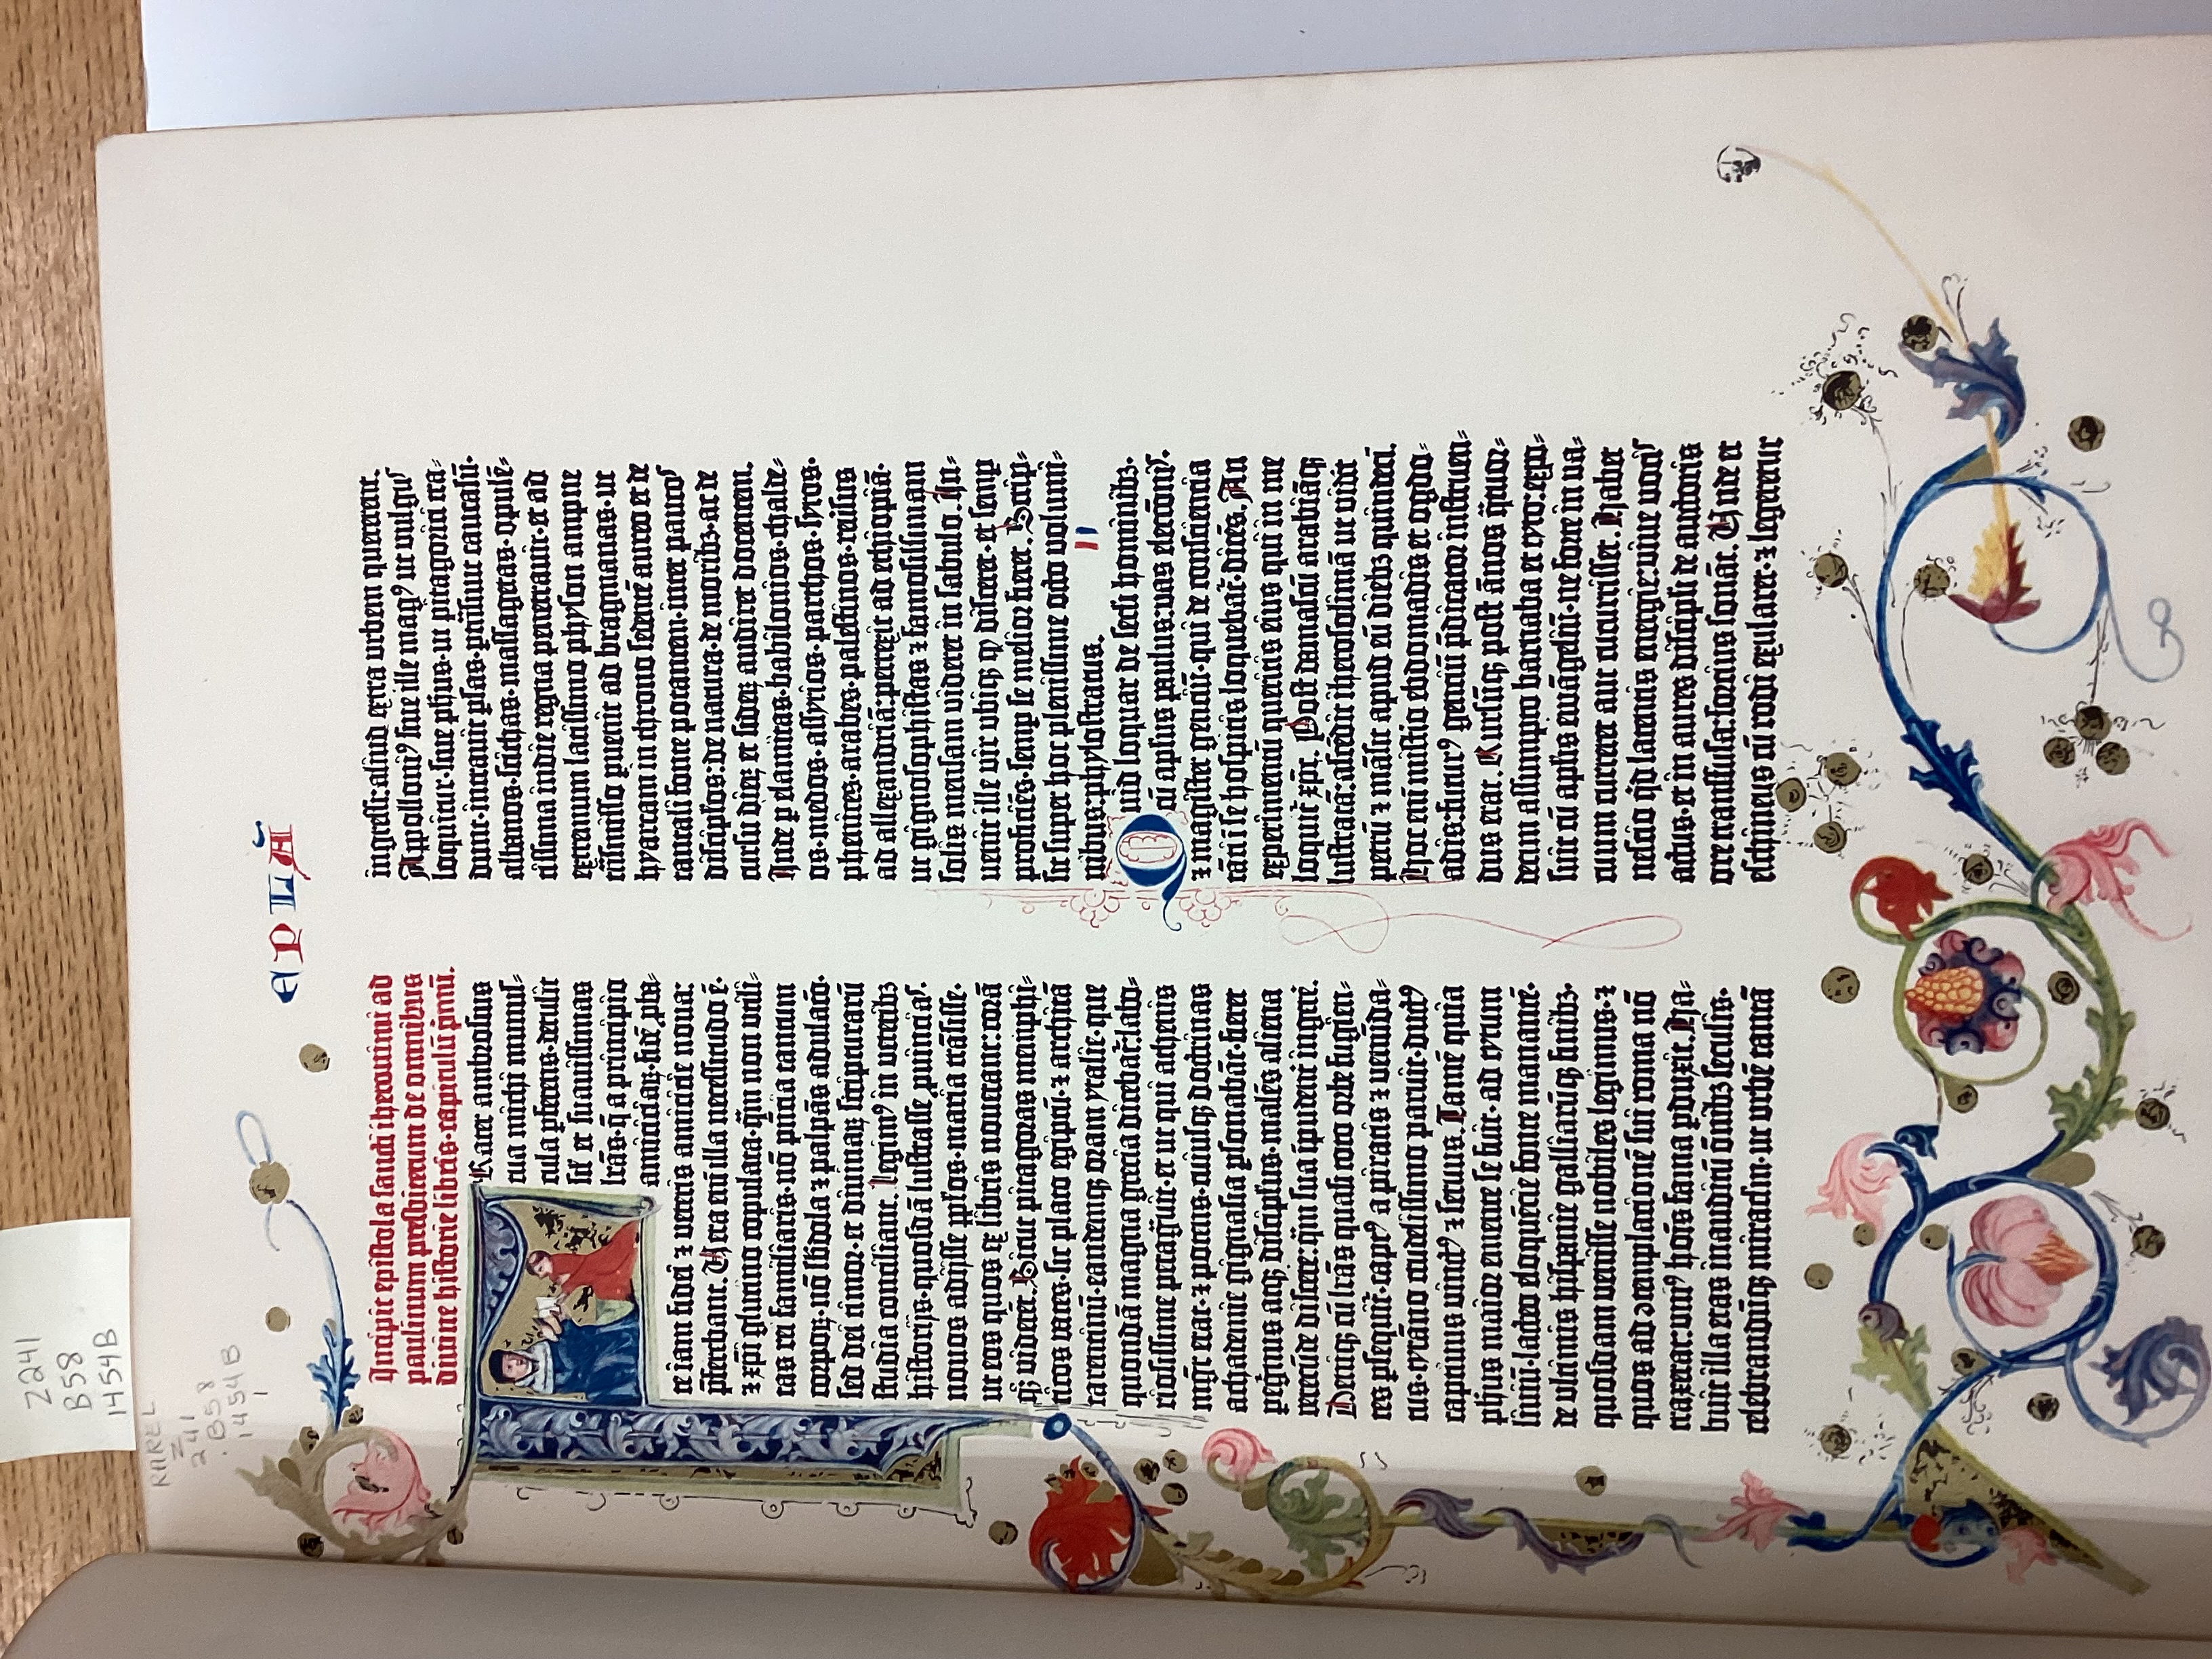 Z241
B58
1454B
RAREL
Z
241
.B58
1454B
EPLA
Incipit epistola sancti iheronimi ad
paulinum presbiterum de omnibus
divine historie libris·capitulũ p̃mũ.
Frater ambrosius
tua michi munus⸗
cula ꝑferens·detulit
sił et suavissimas
lr̃as·q̃ a principio
amiciciaꝝ·fidẽ ꝓba⸗
te iam fidei ⁊ veteris amicicie nova:
p̃ferebant. Vera eñ illa necessitudo ẽ·
⁊ xp̃i glutino copulata·qm̃ non utili⸗
tas rei familiaris·nõ p̃ncia tantum
corpoꝝ·nõ sb̃dola ⁊ palpãs adulacõ·
sed dei timor·et divinaꝝ scripturarũ
studia conciliant. Legim⁹ in veteribꝫ
historijs·quosdã lustrasse ꝓvincias.
novos adijsse pp̃los·maria trãsisse·
ut eos quos ex libris noverant: corã
qꝫ viderẽt. Sicut pitagoras memphi⸗
ticos vates·sic plato egiptũ·⁊ architã
tarentinũ·eandemqꝫ oram ytalie·que
quondã magna grecia dicebat̃: labo⸗
riosissime peragravit·et ut qui athenis
mgr̃ erat·⁊ potens·cuiusqꝫ doctrinas
achademie gignasia ꝑsonabãt·fieret
ꝑegrinus atqꝫ discipulus·malẽs aliena
verecũde discere: qm̃ sua ĩpudent̃ ingere.
Deniqꝫ cũ lr̃as quasi toto orbe fugien⸗
tes ꝑsequit̃·capt⁹ a piratis ⁊ venũda⸗
tus·tyrãno crudelissimo paruit·duct⁹
captivus vinct⁹ ⁊ servus. Tamẽ quia
ph̃us maior emente se fuit·ad tytum
liviũ·lacteo eloquẽcie fonte manantẽ·
de ultimis hispanie galliarũqꝫ finibꝫ·
quosdam venisse nobiles legimus·⁊
quos ad ꝯtemplacionẽ sui roma nõ
traxerat: uni⁹ hoĩs fama ꝑduxit. Ha⸗
buit illa etas inauditũ õnibꝫ seculis·
celebrandũqꝫ miraclm̃·ut urbẽ tantã
ingressi: aliud extra urbem quererent.
Appolloni⁹ sive ille mag⁹ ut vulgus
loquitur·sive ph̃us·ut pitagorici tra⸗
dunt·intravit ꝑsas·ꝑtrãsivit caucasũ·
albanos·scithas·massagetas·opulẽ⸗
tissima indie regna penetravit·et ad
extremum latissimo physon ampne
trãsmisso ꝑvenit ad bragmanas·ut
hyarcam in throno sedentẽ aureo et de
tantali fonte potantem·inter paucos
discipl̃os·de natura·de moribꝫ·ac de
cursu dieꝝ et sideꝝ audiret docentem.
Inde ꝑ elamitas·babilonios·chalde⸗
os·medos·assyrios·parthos·syros·
phenices·arabes·palestinos·reṽsus
ad allexandriã: perrexit ad ethiopiã·
ut gignosophistas ⁊ famosissimam
solis mensam videret in sabulo. In⸗
venit ille vir ubiqꝫ qď disceret·et semꝑ
proficiẽs·semꝑ se melior fieret. Scrip⸗
sit super hoc plenissime octo volumi⸗
nibus: phylostratus. II
Quid loquar de sec̃li hominibꝫ·
cũ apl̃us paulus: vas elect̃onis.
⁊ magister genciũ·qui de consciencia
tãti ĩ se hospitis loquebat̃·dicẽs. An
experimentũ queritis eius qui in me
loquit̃ xp̃c. Post damascũ arabiãqꝫ
lustratã: ascẽdit iherosolimã ut vidẽt
petrũ ⁊ mãsit apud eũ diebꝫ quindeci.
Hoc eñ misterio ebdomadis et ogdo⸗
adis: futur⁹ genciũ p̃dicator instruen⸗
dus erat. Rursũqꝫ post ãnos q̃tuor⸗
decim assumpto barnaba et tyto: expo⸗
suit cũ apl̃is euãgeliũ·ne forte in va⸗
cuum curreret aut cucurrisset. Habet
nescio q̃d latentis energie: vive vocis
actus·et in aures discipli de auctoris
ore transfusa: forcius sonat. Unde et
eschineus cũ rodi exularet·⁊ legeretur